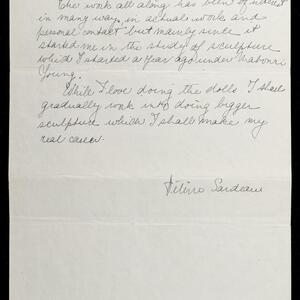 The work all along has been of interest
in many way, in actual work and
personal contact but mainly since it
started me in the study of sculpture
which I started a year ago under Mahonri
Young.
While I love doing the dolls I shall
gradually work into doing bigger
sculpture which I shall make my
real career.
Helene Sardeau